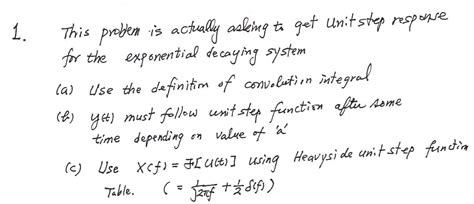 1. This problem is actually asking to get Unit step response
for the exponential decaying system
(a) Use the definition of convolution integral
(b) y(t) must follow unit step function after some
time depending on value of 'a'
(c) Use X(f) = F[u(t)] using Heavyside unit step function
Table. ( = 1/j2πf + 1/2 δ(f) )